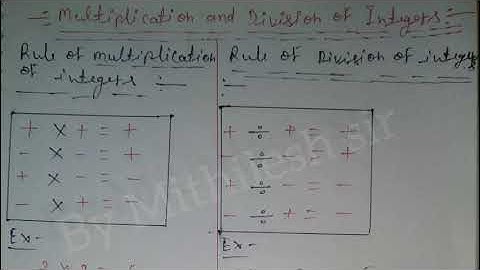 :- Multiplication and Division of Integers :-
Rule of multiplication
of integers :-
+ × + = +
- × - = +
+ × - = -
- × + = -
Ex -
Rule of Division of integers
:-
+ ÷ + = +
- ÷ - = +
+ ÷ - = -
- ÷ + = -
Ex -
By Mithilesh sir